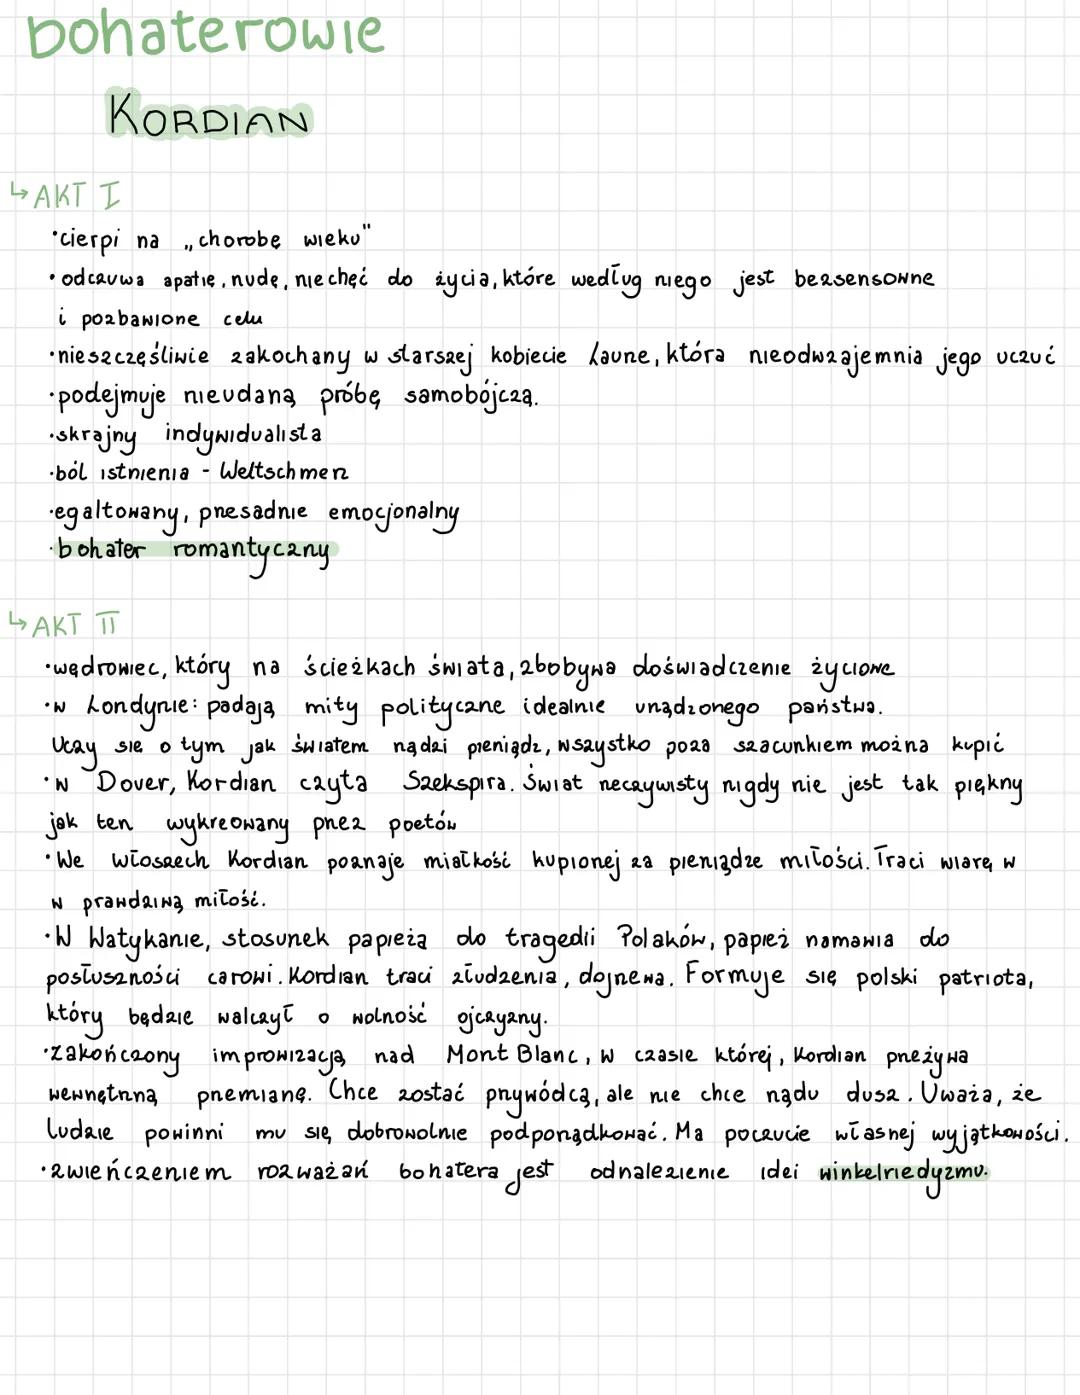 bohaterowie
KORDIAN
↳ AKT I
•cierpi na „chorobę wieku"
•odczuwa apatię, nudę, niechęć do życia, które według niego jest bezsensowne
i pozbawione celu
•nieszczęśliwie zakochany w starszej kobiecie Laurze, która nieodwzajemnia jego uczuć
•podejmuje nieudaną próbę samobójczą.
•skrajny indywidualista
•ból istnienia - Weltschmerz
•egzaltowany, przesadnie emocjonalny
•bohater romantyczny
↳ AKT II
•wędrowiec, który na ścieżkach świata, zbobywa doświadczenie życiowe
•w Londynie: padają mity polityczne idealnie urządzonego państwa.
Uczy sie o tym jak światem rządzi pieniądz, wszystko poza szacunkiem można kupić
•w Dover, Kordian czyta Szekspira. Świat rzeczywisty nigdy nie jest tak piękny
jak ten wykreowany przez poetów
•We Włoszech Kordian poznaje miałkość kupionej za pieniądze miłości. Traci wiarę w
w prawdziwą miłość.
•W Watykanie, stosunek papieża do tragedii Polaków, papież namawia do
posłuszności carowi. Kordian traci złudzenia, dojrzewa. Formuje się polski patriota,
który będzie walczył o wolność ojczyzny.
•Zakończony improwizacją nad Mont Blanc, w czasie której, Kordian przeżywa
wewnętrzną przemianę. Chce zostać przywódcą, ale nie chce rządu dusz. Uważa, że
ludzie powinni mu się dobrowolnie podporządkować. Ma poczucie własnej wyjątkowości.
•zwieńczeniem rozważań bohatera jest odnalezienie idei winkelriedyzmu.